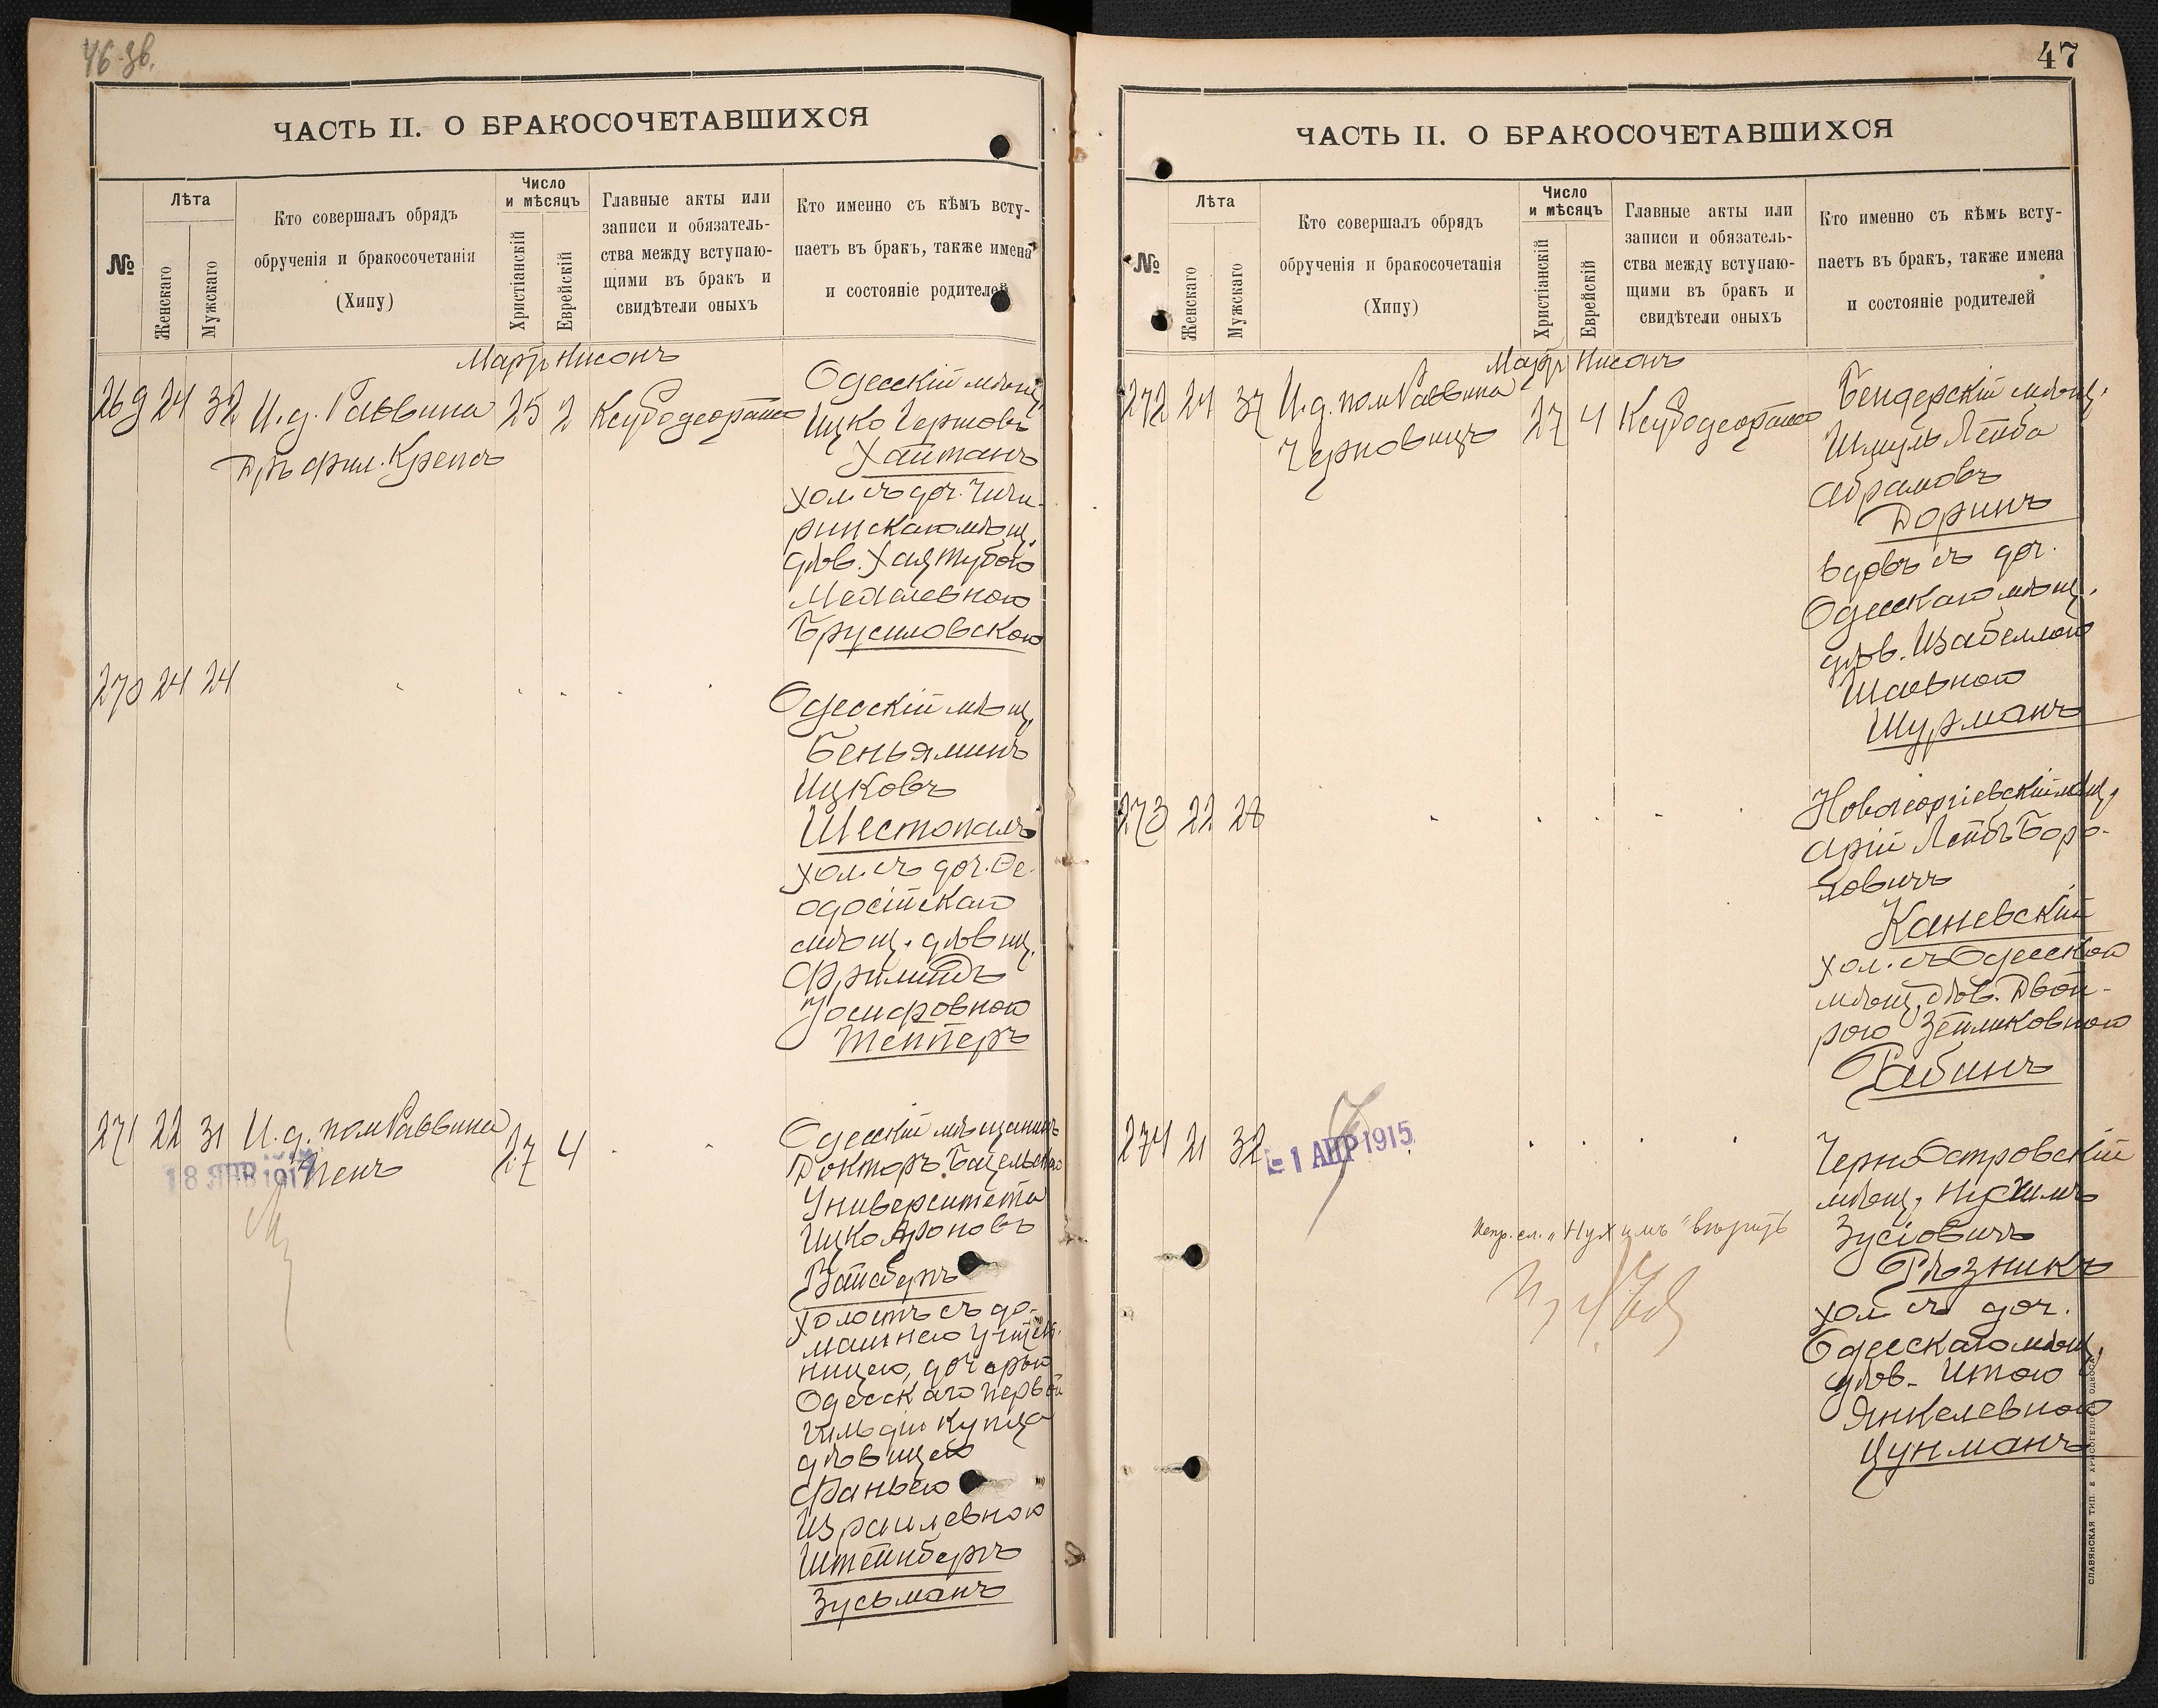 46-зв.
ЧАСТЬ II. О БРАКОСОЧЕТАВШИХСЯ
№
Лѣта
Женскаго
Мужскаго
Кто совершалъ обрядъ
обрученія и бракосочетанія
(Хипу)
Число
и мѣсяцъ
Христіанскій
Еврейскій
Главные акты или
записи и обязатель-
ства между вступаю-
щими въ бракъ и
свидѣтели оныхъ
Кто именно съ кѣмъ всту-
паетъ въ бракъ, также имена
и состояніе родителей
Мартъ Нисонъ
269 24 32 И. д. Раввина 25 2
Дръ фил. Крепсъ
Одесскій мѣщ.
Ицко Гершовъ
Хайтанъ
хол. съ доч. Чиги-
ринскаго мѣщ.
дѣв. Хая Тубою
Брусиловскою
270 24 24
Одесскій мѣщ.
Беньяминъ
Ицковъ
Шестопалъ
хол. съ доч. Ѳе-
одосійскаго
мѣщ. дѣвиц.
Фримитъ
Іосифовною
Теннеръ
271 22 31 И. д. пом Раввина 27 4
18 ЯНВ 1917
Одесскій мѣщанинъ
Докторъ Базельскаго
Университета
Ицко Ароновъ
холостъ съ до-
машнею учител.
ницею, дочерью
Одесскаго первой
гильдіи купца
дѣвицею
Фанею
Израилевною
Штейнбергъ
Зусьманъ
47
ЧАСТЬ II. О БРАКОСОЧЕТАВШИХСЯ
№
Лѣта
Женскаго
Мужскаго
Кто совершалъ обрядъ
обрученія и бракосочетанія
(Хипу)
Число
и мѣсяцъ
Христіанскій
Еврейскій
Главные акты или
записи и обязатель-
ства между вступаю-
щими въ бракъ и
свидѣтели оныхъ
Кто именно съ кѣмъ всту-
паетъ въ бракъ, также имена
и состояніе родителей
Мартъ Нисонъ
272 24 37 И. д. пом Раввина 27 4
Черновицъ
Бендерскій мѣщ.
Шмуль Лейба
Абрамовъ
Доринъ
вдовъ съ доч.
Одесскаго мѣщ.
дѣв. Изабеллою
Шаевною
Шурманъ
273 22 28
Новогеоргіевскій мѣщ.
Арій Лейбъ Боро-
ховичъ
Каневскій
хол. съ Одесскою
мѣщ. дѣв. Двой-
рою Зейликовною
Рабинъ
274 21 32
- 1 АПР 1915
ЧерноОстровскій
мѣщ. Нухимъ
Зусіовичъ
Рѣзникъ
хол. съ доч.
Одесскаго мѣщ.
дѣв. Итою
Янкелевною
Цунманъ
Испр. сл. „Нухимъ" вѣрить
СЛАВЯНСКАЯ ТИП. Е. ХРИСОГЕЛОСЪ, ОДЕССА